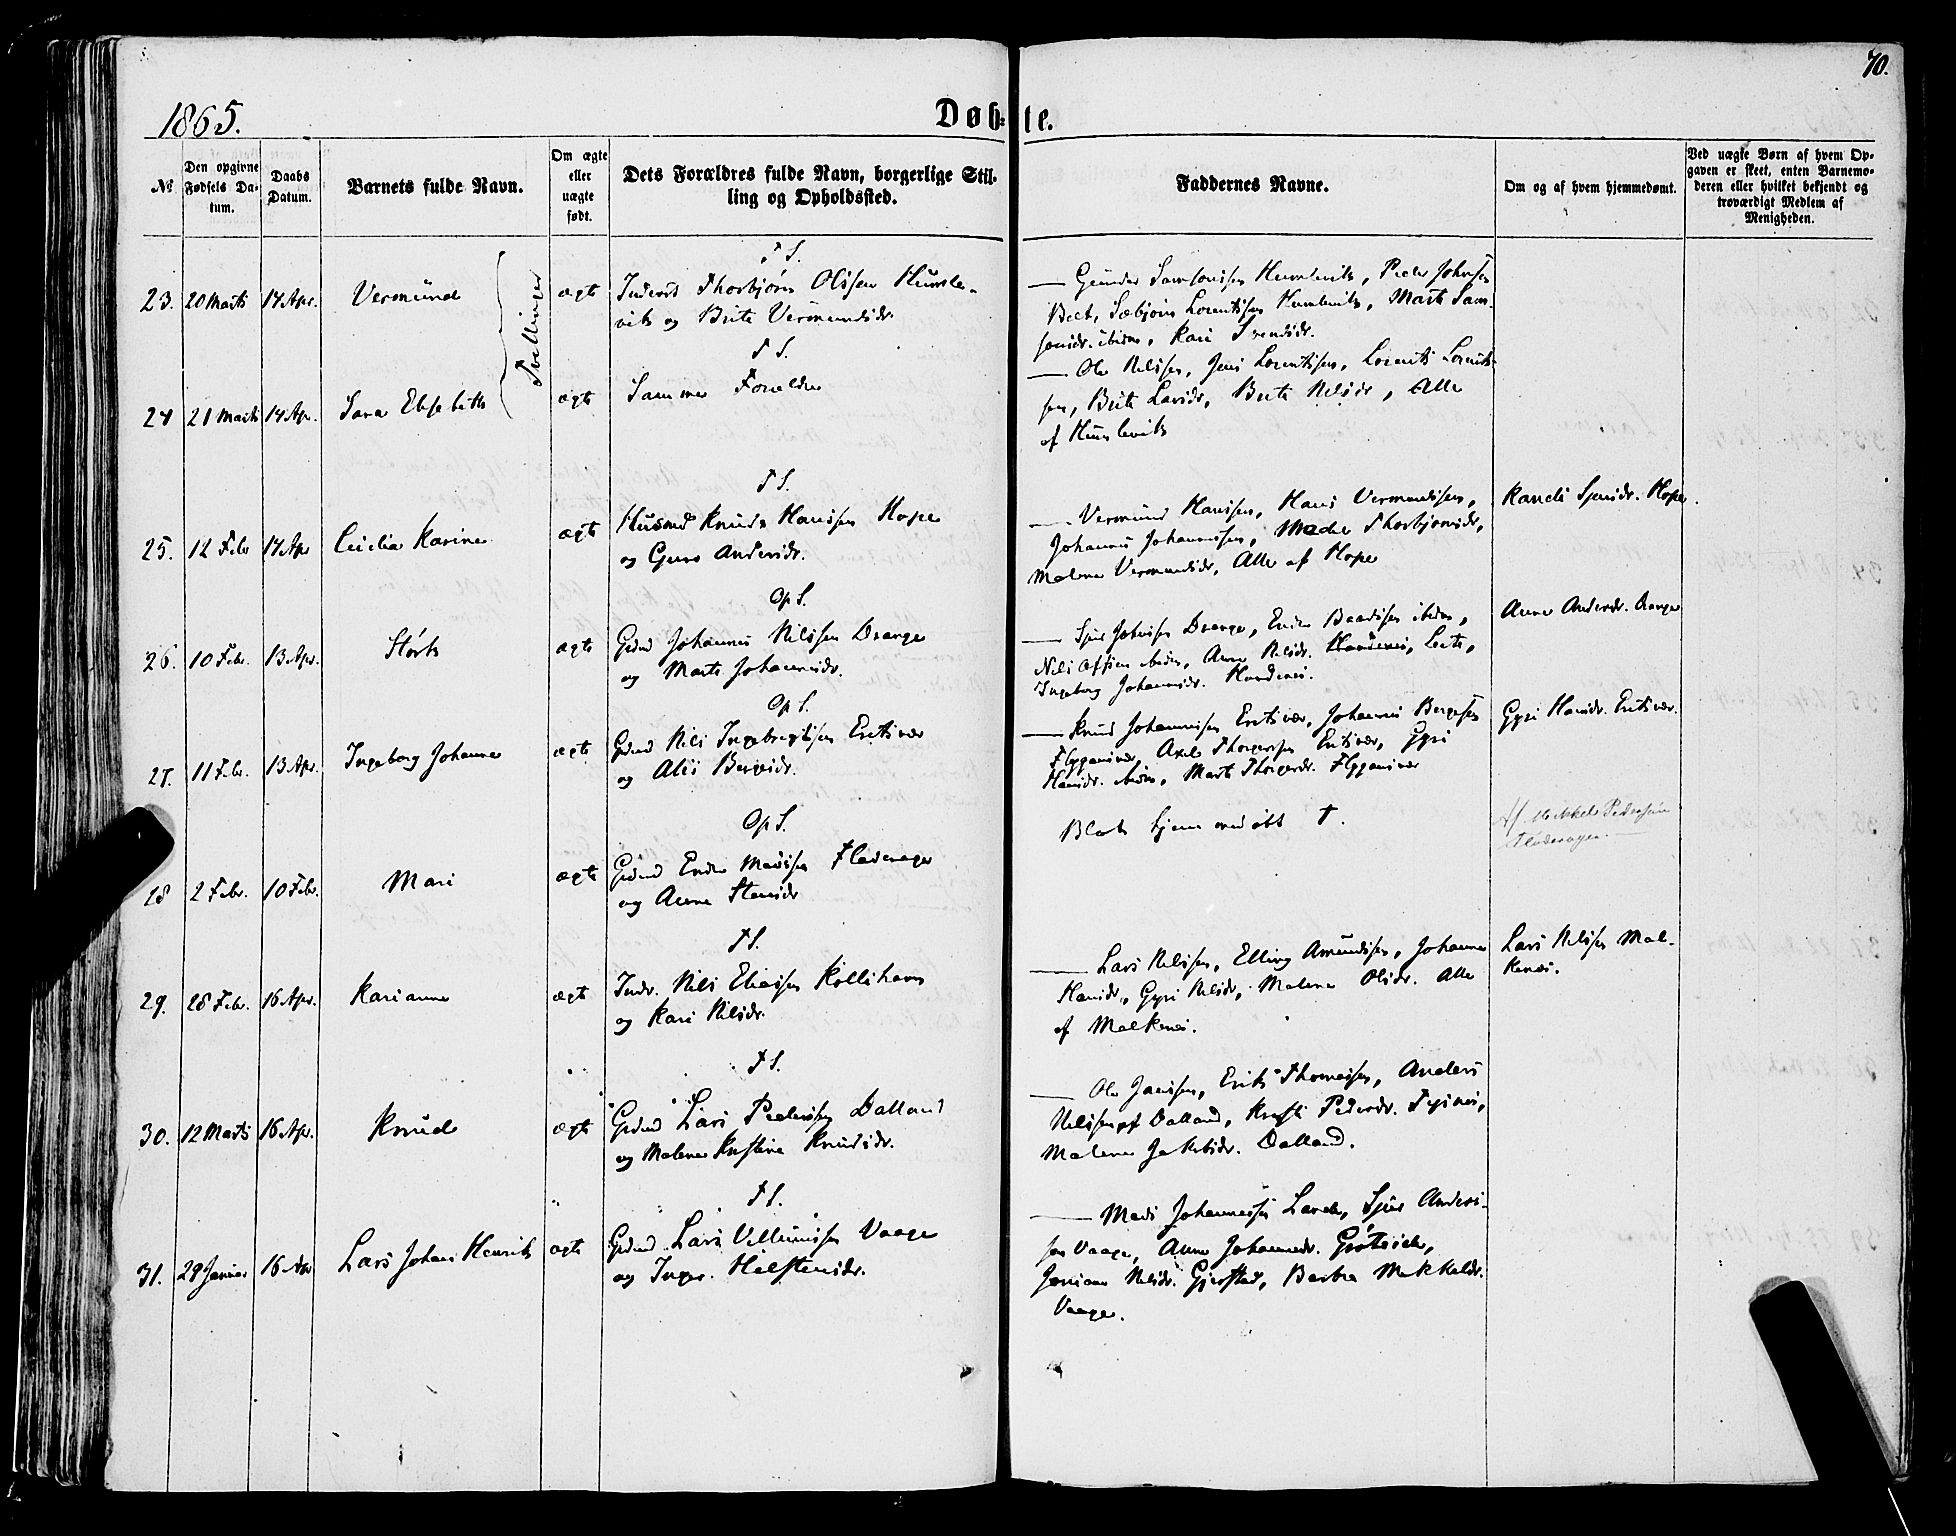 70.
1865.
Døb=te.
№
Den opgivne Fødsels Da-tum.
Daabs Datum.
Barnets fulde Navn.
Om ægte eller uægte født.
Dets Forældres fulde Navn, borgerlige Stil-
ling og Opholdssted.
Faddernes Navne.
Om og af hvem hjemmedøbt.
Ved uægte Børn af hvem Op-
gaven er skeet, enten Barnemo-
deren eller hvilket bekjendt og
troværdigt Medlem af
Menigheden.
T S.
23. 20 Marts 14 Apr. Vermund ægte Inderst Thorbjørn Olssen Humle-
vik og Brite Vermundsdr.
Tvillinger
Gunder Samsonsen Humlevik, Peder Johnsen
Sæbjørn Lorentsen Humlevik, Marte Sam-
sonsdr. ibidm, Kari Svendsdr.
T S.
24 21 Marts 14 Apr. Sara Elisabeth ægte Samme Forældre
Ole Nilssen, Jens Lorentsen, Lorents Lorents-
sen, Brite Larsdr, Brite Nilsdr, Alle
af Humlevik
T S.
25. 12 Febr 14 Apr Cicilia Karine ægte Husmd Knud Hanssen Hope
og Guro Andersdr.
Vermund Hanssen, Hans Vermundsen,
Johannes Johannessen, Madel Thorbjørnsdr,
Malene Vermundsdr, Alle af Hope
Randi Sjursdr. Hope
Op S.
26. 10 Febr. 13 Apr. Størk ægte Grdmd Johannes Nilssen Drange
og Marte Johannesdr.
Sjur Johnsen Drange, Endre Baardsen ibidm,
Nils ibidm, Anne Nilsdr. Hordnes,
Ingeborg Johannesdr. Hordnes.
Anne Andersdr. Drange
Op S.
27. 11 Febr. 13 Apr. Ingeborg Johanne ægte Grdmd Nils Ingebrigtsen Eritsvær
og Alis
Knud Johannessen Eritsvær, Johannes
Flygansvær, Axel Eritsvær, Gyri
Hansdr. ibidm, Marte Flygansvær
Gyri Hansdr. Eritsvær.
Op S.
28 2 Febr. 10 Febr. Mari ægte Grdmd Endre Madsen Fladerager
og Anne Stensdr
Blot hjemmedøbt †.
Af Mikkel Pedersen
Fladerager.
T S.
29. 28 Febr. 16 Apr. Karianne ægte Indr. Nils Eliassen Kollshavn
og Kari Nilsdr.
Lars Nilssen, Elling Amundsen, Johanne
Hansdr, Gyri Nilsdr, Malene Olsdr. Alle
af Malkenes.
Lars Nilssen Mal-
kenes.
T S.
30. 12 Marts 16 Apr. Knud ægte Grdmd Lars Pedersen Dalland
og Malene Kristine Knudsdr.
Ole Janssen, Erik Thomassen, Anders
Nilssen af Dalland, Kristi Pedersdr.
Malene Jakobsdr. Dalland.
T S.
31. 29 Januar 16 Apr Lars Johan Henrik ægte Grdmd Lars Villumsen Vaage
og Inger Halstensdr.
Mads Johannessen Lande, Sjur Anders-
sen Vaage, Anne Johannesdr.
Nilsdr. Gjerstad, Barbra Mikkelsdr.
Vaage.